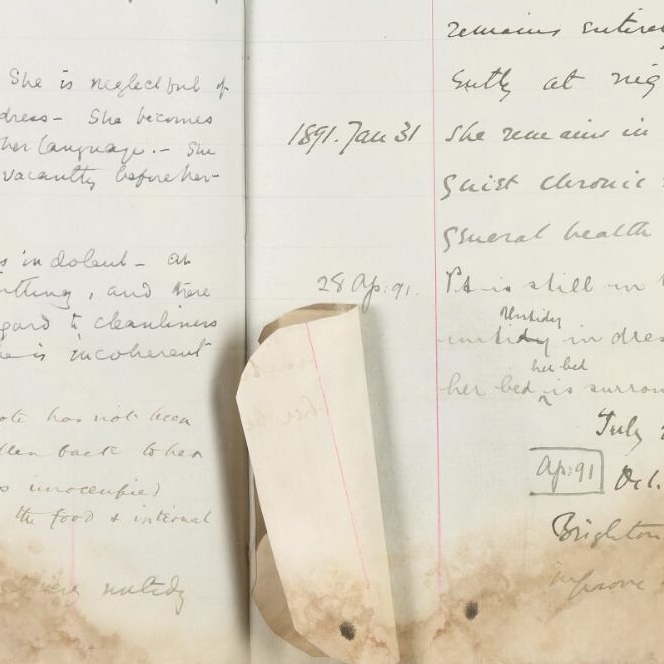 She is neglectful of
dress – She becomes
her language. – She
vacantly before her –
s indolent – at
thing, and there
gard to cleanliness
is incoherent
has not been
back to her
unoccupied
the food & internal
untidy
remains entire
ently at nig
1891. Jan 31 She remains in
quiet chronic
general health
28 Ap: 91. Pt is still in
Untidy
untidy in dres
her bed
her bed is surrou
July
Ap: 91 Oct.
Brighton
improve